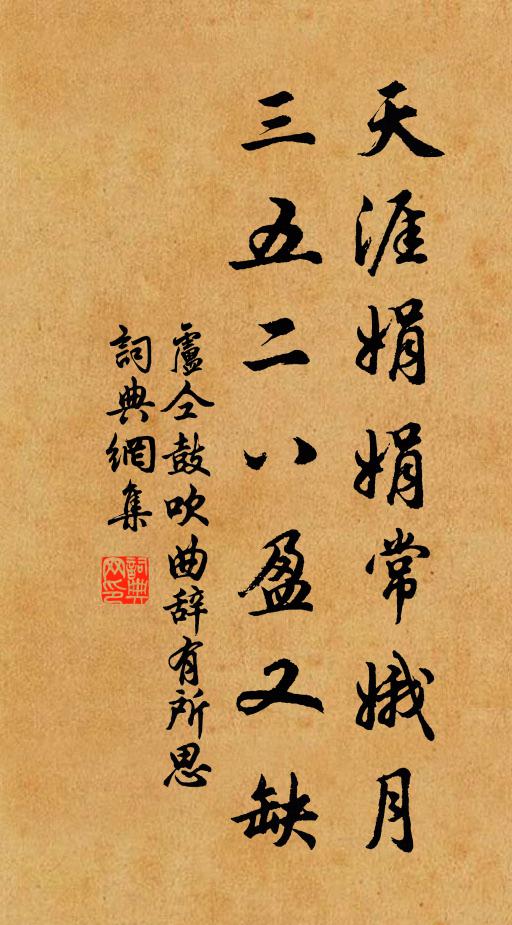 天涯娟娟常娥月
三五二八盈又缺
盧仝鼓吹曲辞有所思
詞典網集
詞典网印